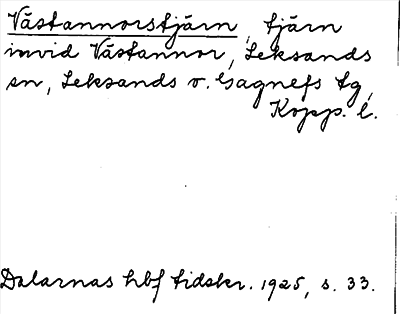 Västannorstjärn, tjärn
invid Västannor, Leksands
sn, Leksands o. Gagnefs tg,
Kopp. l.
Dalarnas hbf tidskr. 1925, s. 33.